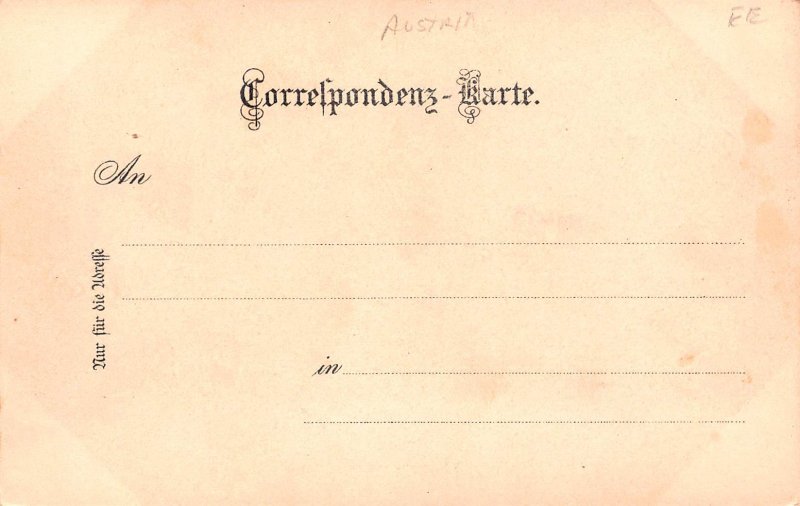 AUSTRIA
EE
Correſpondenz-Karte.
An
Nur für die Adreſſe
in